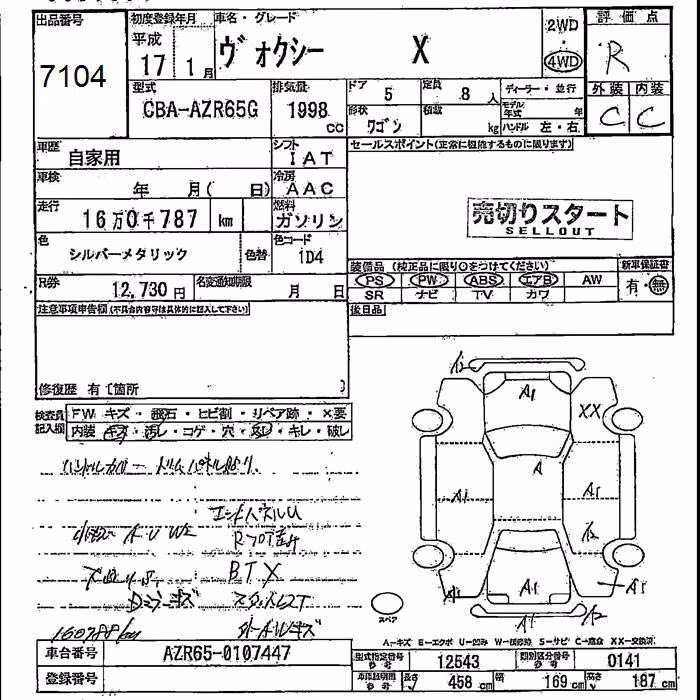 出品番号
7104
初度登録年月
平成
17 1月
車名・グレード
ヴォクシー X
2WD
・
4WD
評価点
R
外装 内装
C C
型式
CBA-AZR65G
排気量
1998 cc
ドア 5
定員 8人
形状 ワゴン
積載 kg
ディーラー・並行
モデル年式 年
ハンドル 左・右
車歴 自家用
シフト IAT
車検 年 月( 日)
冷房 AAC
走行 16万0千787 km
燃料 ガソリン
色 シルバーメタリック
色替
色コード 1D4
R券 12,730円
名変通知期限 月 日
セールスポイント(正常に極能するものに限ります)
売切りスタート
SELLOUT
装備品 (純正品に限り○をつけてください)
新車保証書
PS PW ABS エアB AW
有・無
SR ナビ TV カワ
後日品
注意事項申告欄(不具合内容等は具体的に記入して下さい)
修復歴 有〔箇所 〕
検査員記入欄
FW キズ・飛石・ヒビ割・リペア跡・×要
内装 キズ・汚レ・コゲ・穴・ヌレ・キレ・破レ
エンドパネルU
BTX
160788km
A2
A1
XX
A
A1
A1
A1
スペア
A…キズ E…エクボ U…凹み W…補修跡 S…サビ C…腐食 XX…交換済
車台番号 AZR65-0107447
登録番号
型式指定番号 参考 12543
類別区分番号 参考 0141
車検証明書 参考 長さ 458cm 幅 169cm 高さ 187cm